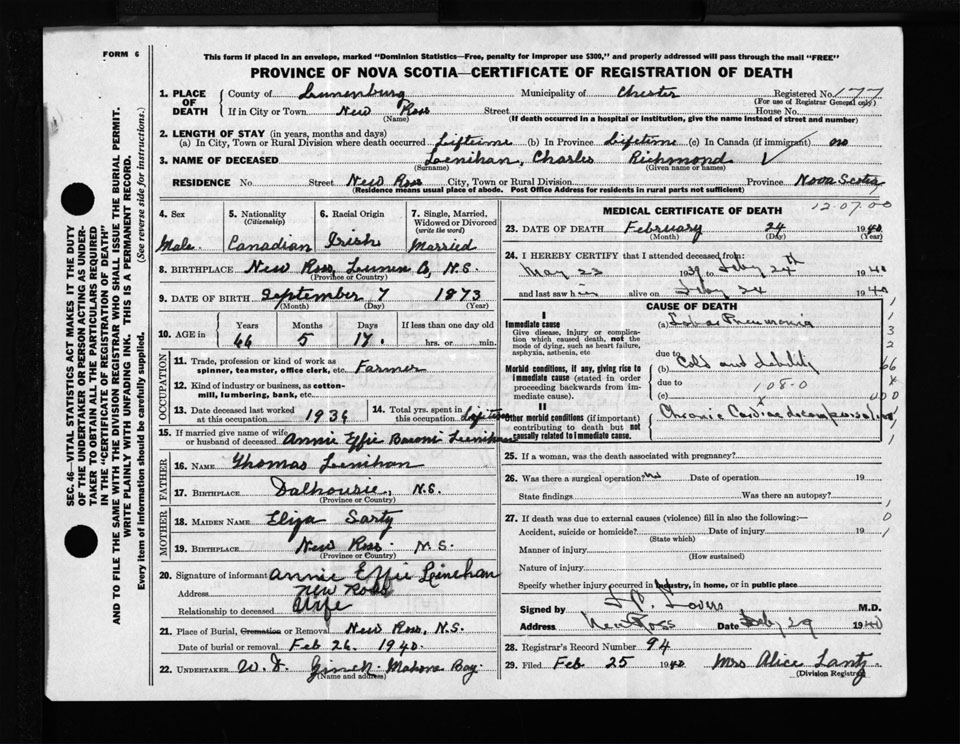 FORM 6
This form if placed in an envelope, marked "Dominion Statistics—Free, penalty for improper use $300," and properly addressed will pass through the mail "FREE"
PROVINCE OF NOVA SCOTIA—CERTIFICATE OF REGISTRATION OF DEATH
SEC. 46—VITAL STATISTICS ACT MAKES IT THE DUTY
OF THE UNDERTAKER OR PERSON ACTING AS UNDER-
TAKER TO OBTAIN ALL THE PARTICULARS REQUIRED
IN THE "CERTIFICATE OF REGISTRATION OF DEATH"
AND TO FILE THE SAME WITH THE DIVISION REGISTRAR WHO SHALL ISSUE THE BURIAL PERMIT.
WRITE PLAINLY WITH UNFADING INK. THIS IS A PERMANENT RECORD.
Every item of information should be carefully supplied. (See reverse side for instructions.)
1. PLACE OF DEATH County of Lunenburg Municipality of Chester Registered No. 177
(For use of Registrar General only)
If in City or Town New Ross Street House No.
(Name) (If death occurred in a hospital or institution, give the name instead of street and number)
2. LENGTH OF STAY (in years, months and days)
(a) In City, Town or Rural Division where death occurred Lifetime (b) In Province Lifetime (c) In Canada (if immigrant)
3. NAME OF DECEASED Leenihan, Charles Richmond
(Surname) (Given name or names)
RESIDENCE No. Street New Ross City, Town or Rural Division Province Nova Scotia
(Residence means usual place of abode. Post Office Address for residents in rural parts not sufficient)
4. Sex
Male
5. Nationality
(Citizenship)
Canadian
6. Racial Origin
Irish
7. Single, Married,
Widowed or Divorced
(write the word)
Married
8. BIRTHPLACE New Ross, Lunen Co, N.S.
(Province or Country)
9. DATE OF BIRTH September 7 1873
(Month) (Day) (Year)
10. AGE in Years Months Days If less than one day old
66 5 17. hrs. or min.
OCCUPATION
11. Trade, profession or kind of work as
spinner, teamster, office clerk, etc. Farmer
12. Kind of industry or business, as cotton-
mill, lumbering, bank, etc.
13. Date deceased last worked
at this occupation 1936
14. Total yrs. spent in
this occupation Lifetime
15. If married give name of wife
or husband of deceased Annie Effie Leenihan
FATHER
16. NAME Thomas Leenihan
17. BIRTHPLACE Dalhousie, N.S.
(Province or Country)
MOTHER
18. MAIDEN NAME Eliza Sarty
19. BIRTHPLACE New Ross N.S.
(Province or Country)
20. Signature of informant Annie Effie Leinehan
Address New Ross
Relationship to deceased Wife
21. Place of Burial, Cremation or Removal New Ross, N.S.
Date of burial or removal Feb 26. 1940.
22. UNDERTAKER W. Mahone Bay.
(Name and address)
12.07.00
MEDICAL CERTIFICATE OF DEATH
23. DATE OF DEATH February 24 1940
(Month) (Day) (Year)
24. I HEREBY CERTIFY that I attended deceased from:
May 23 1939 to Feby 24th 1940
and last saw him alive on Feby 24 1940
CAUSE OF DEATH
I
Immediate cause
Give disease, injury or complica-
tion which caused death, not the
mode of dying, such as heart failure,
asphyxia, asthenia, etc
Morbid conditions, if any, giving rise to
immediate cause (stated in order
proceeding backwards from im-
mediate cause).
II
Other morbid conditions (if important)
contributing to death but not
causally related to immediate cause.
(a) Lobar Pneumonia
due to
(b) Cold and debility
due to 108.0
(c)
Chronic Cardiac decompensation
25. If a woman, was the death associated with pregnancy?
26. Was there a surgical operation? No Date of operation 19
State findings Was there an autopsy?
27. If death was due to external causes (violence) fill in also the following:—
Accident, suicide or homicide? Date of injury 19
(State which)
Manner of injury
(How sustained)
Nature of injury
Specify whether injury occurred in industry, in home, or in public place
Signed by M.D.
Address New Ross Date Feby 29 1940
28. Registrar's Record Number 94
29. Filed Feb 25 1940 Mrs Alice Lantz
(Division Registrar)